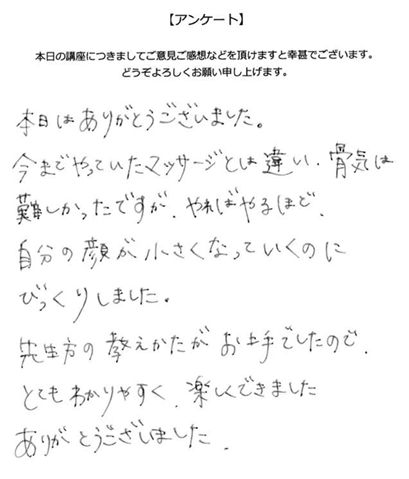 【アンケート】
本日の講座につきましてご意見ご感想などを頂けますと幸甚でございます。
どうぞよろしくお願い申し上げます。
本日はありがとうございました。
今までやっていたマッサージとは違い、骨気は
難しかったですが、やればやるほど、
自分の顔が小さくなっていくのに
びっくりしました。
先生方の教えかたがお上手でしたので、
とてもわかりやすく、楽しくできました
ありがとうございました。